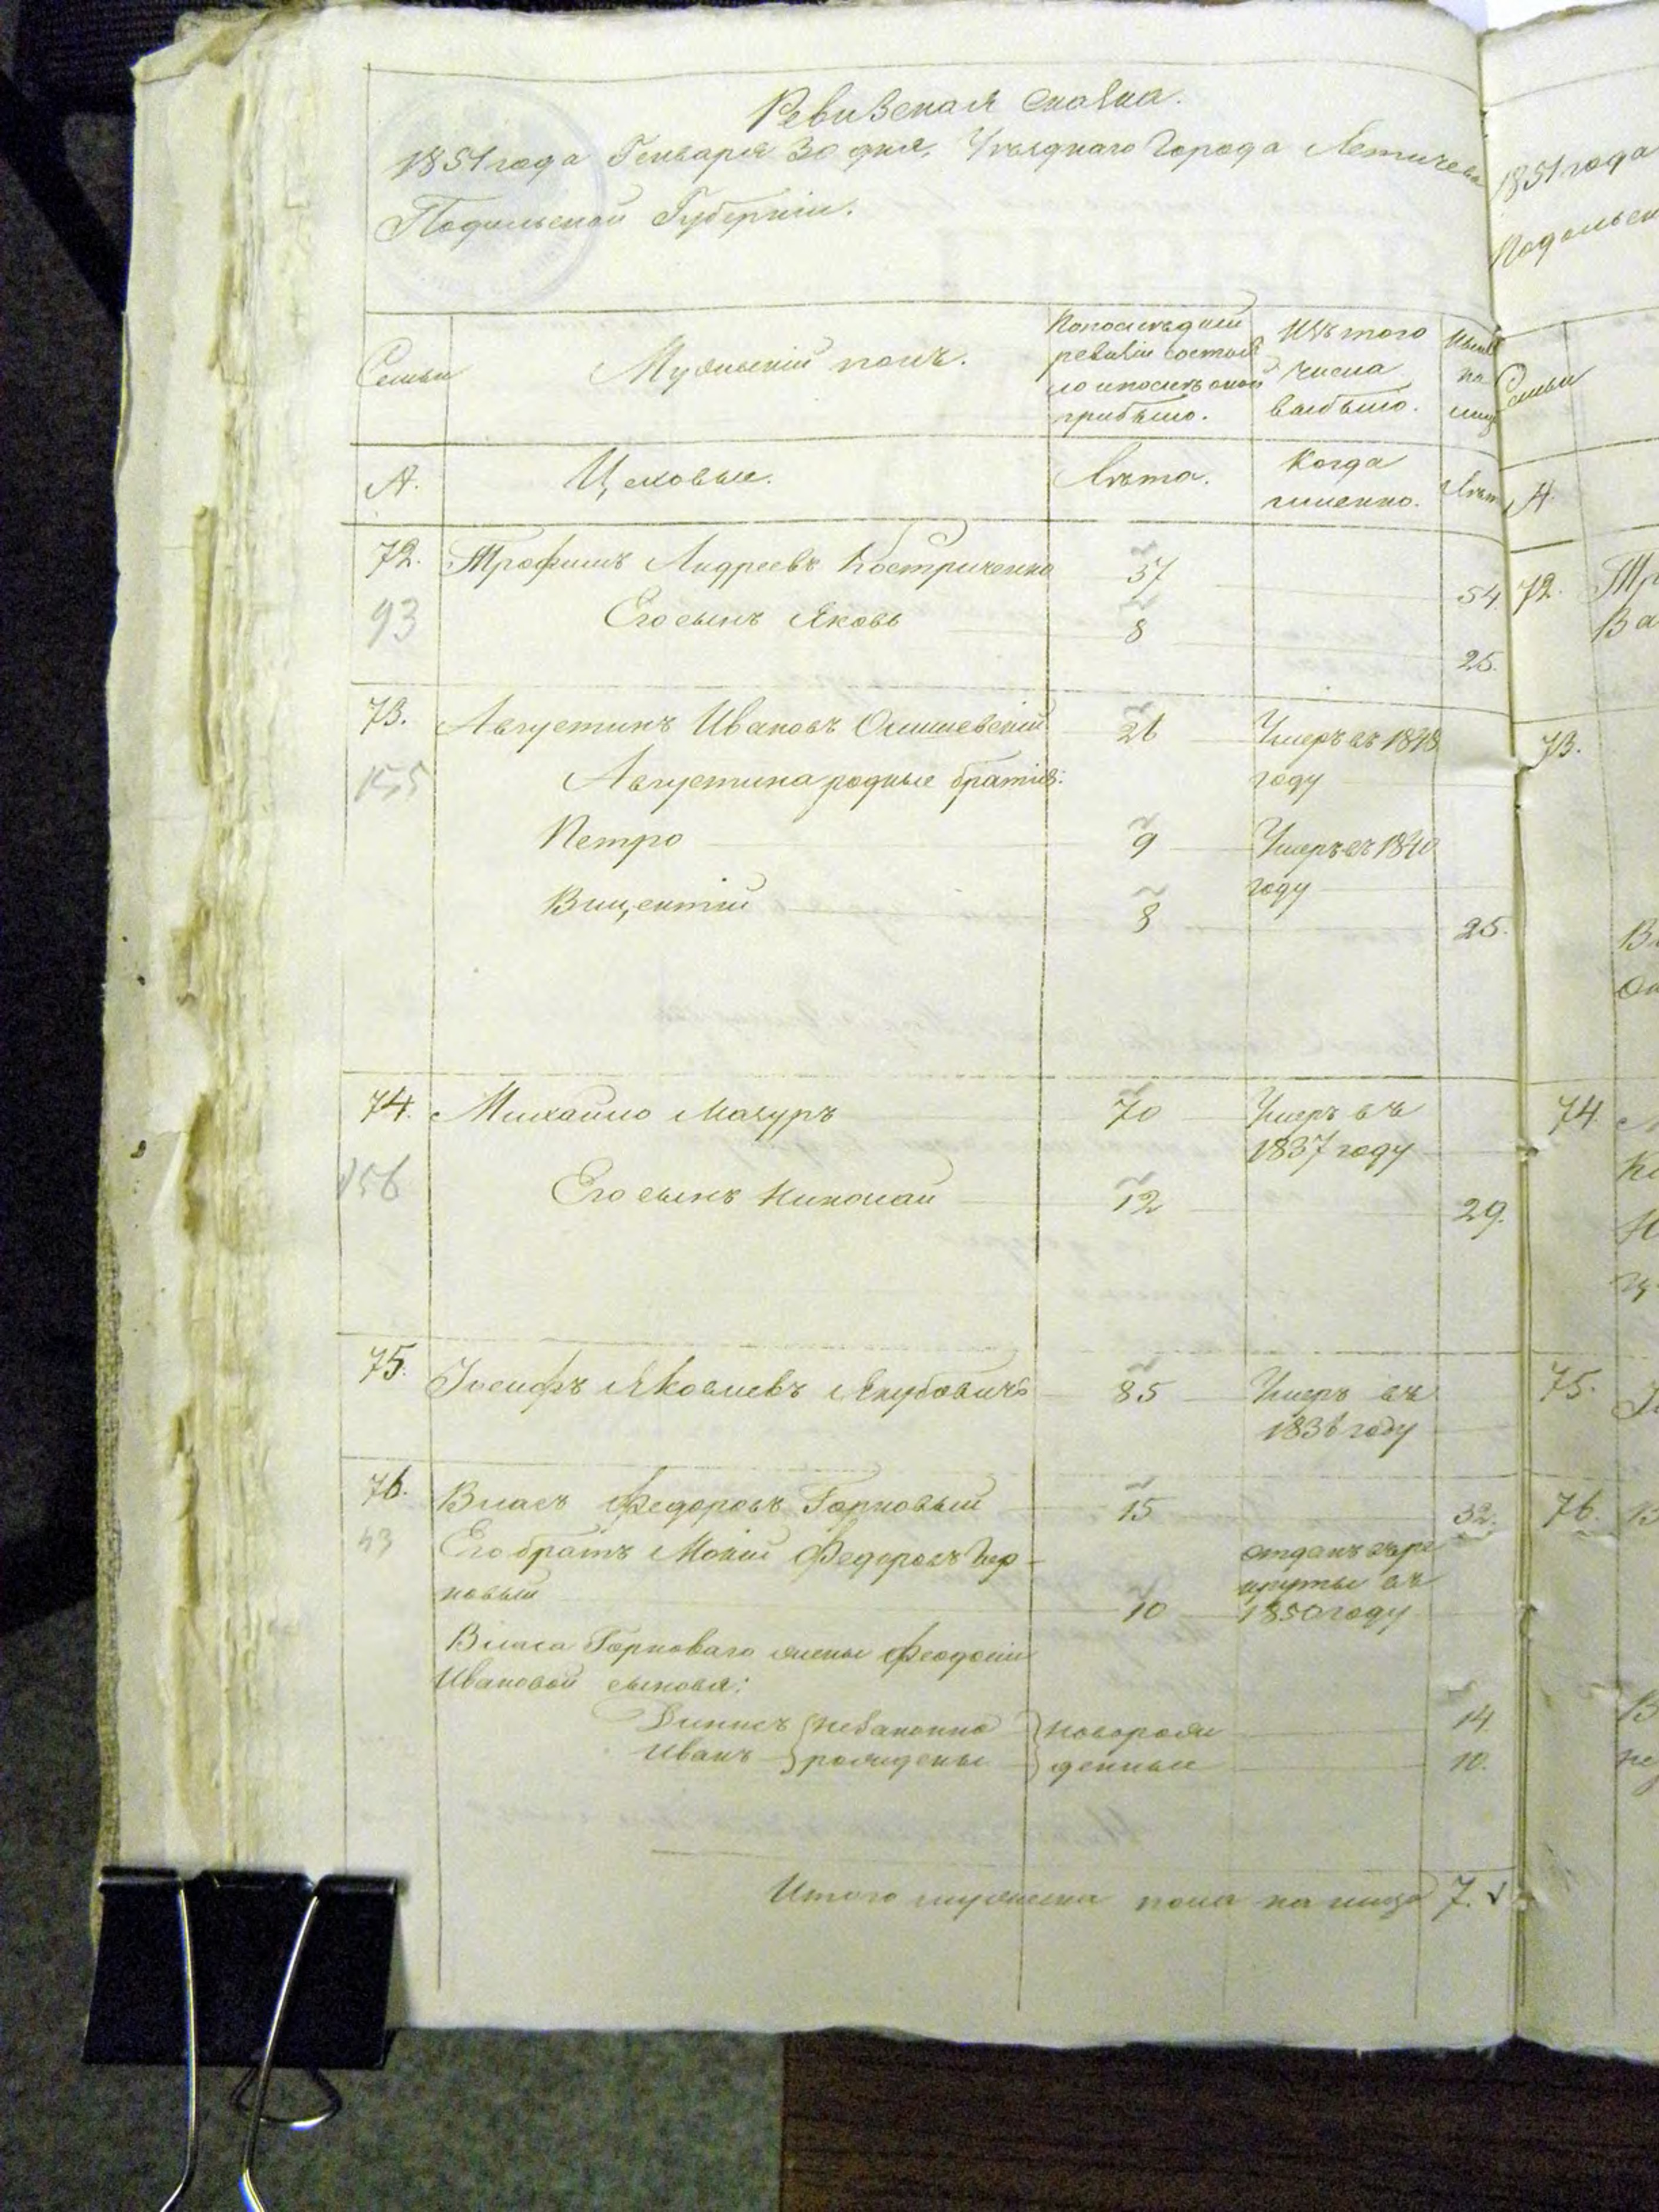 Ревизская сказка.
1851 года Генваря 30 дня, Уѣзднаго Города Летичева
Подольской Губерніи.
Семьи
Мужескій полъ.
По последней
ревизіи состоя
ло и послѣ оной
прибыло.
Изъ того
числа
выбыло.
Ныне
на
лицо
А.
Цеховые.
Лѣта.
Когда
именно.
Лѣта
72. Трофимъ Андреевъ Костриченко 37 54
93 Его сынъ Яковъ 8 25.
73. Августинъ Ивановъ 26 Умеръ въ 1848
году
155 Августина родные братія:
Петро 9 Умеръ въ 1840
году
Вицентій 8 25.
74. Михайло Мазуръ 70 Умеръ въ
1837 году
156 Его сынъ Николай 12 29.
75. Іосифъ Яковлевъ Якубовичъ 85 Умеръ въ
1836 году
76. Власъ Федоровъ Горновый 15 32.
43 Его братъ Мокій Федоровъ Гор-
новый 10
отданъ въ ре
круты въ
1850 году
Власа Горноваго жены Феодосіи
Ивановой сыновья:
Динисъ незаконно новорож 14
Иванъ рождены денные 10.
Итого мужеска пола на лицо 7.
1851 года
Подольск
Семьи
А.
72. Тр
Ва
73.
74.
75.
76.